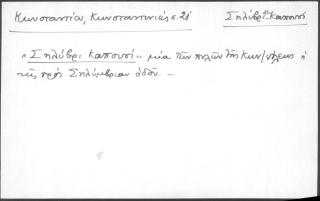 Κωνσταντίου, Κωνσταντινιάς σ. 21 Σηλύβρι-Καπουσί
"Σηλύβρι καπουσί" μία των πυλών της Κων/πόλεως ή
της προς Σηλύμβριαν οδού. —